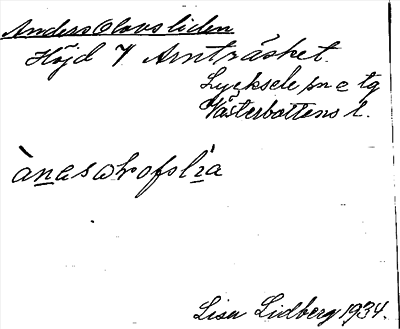 Anders Olovsliden
Höjd V Arnträsket.
Lycksele sn o tg
Västerbottens l.
ànəsωhofolia
Lisa Lidberg 1934.